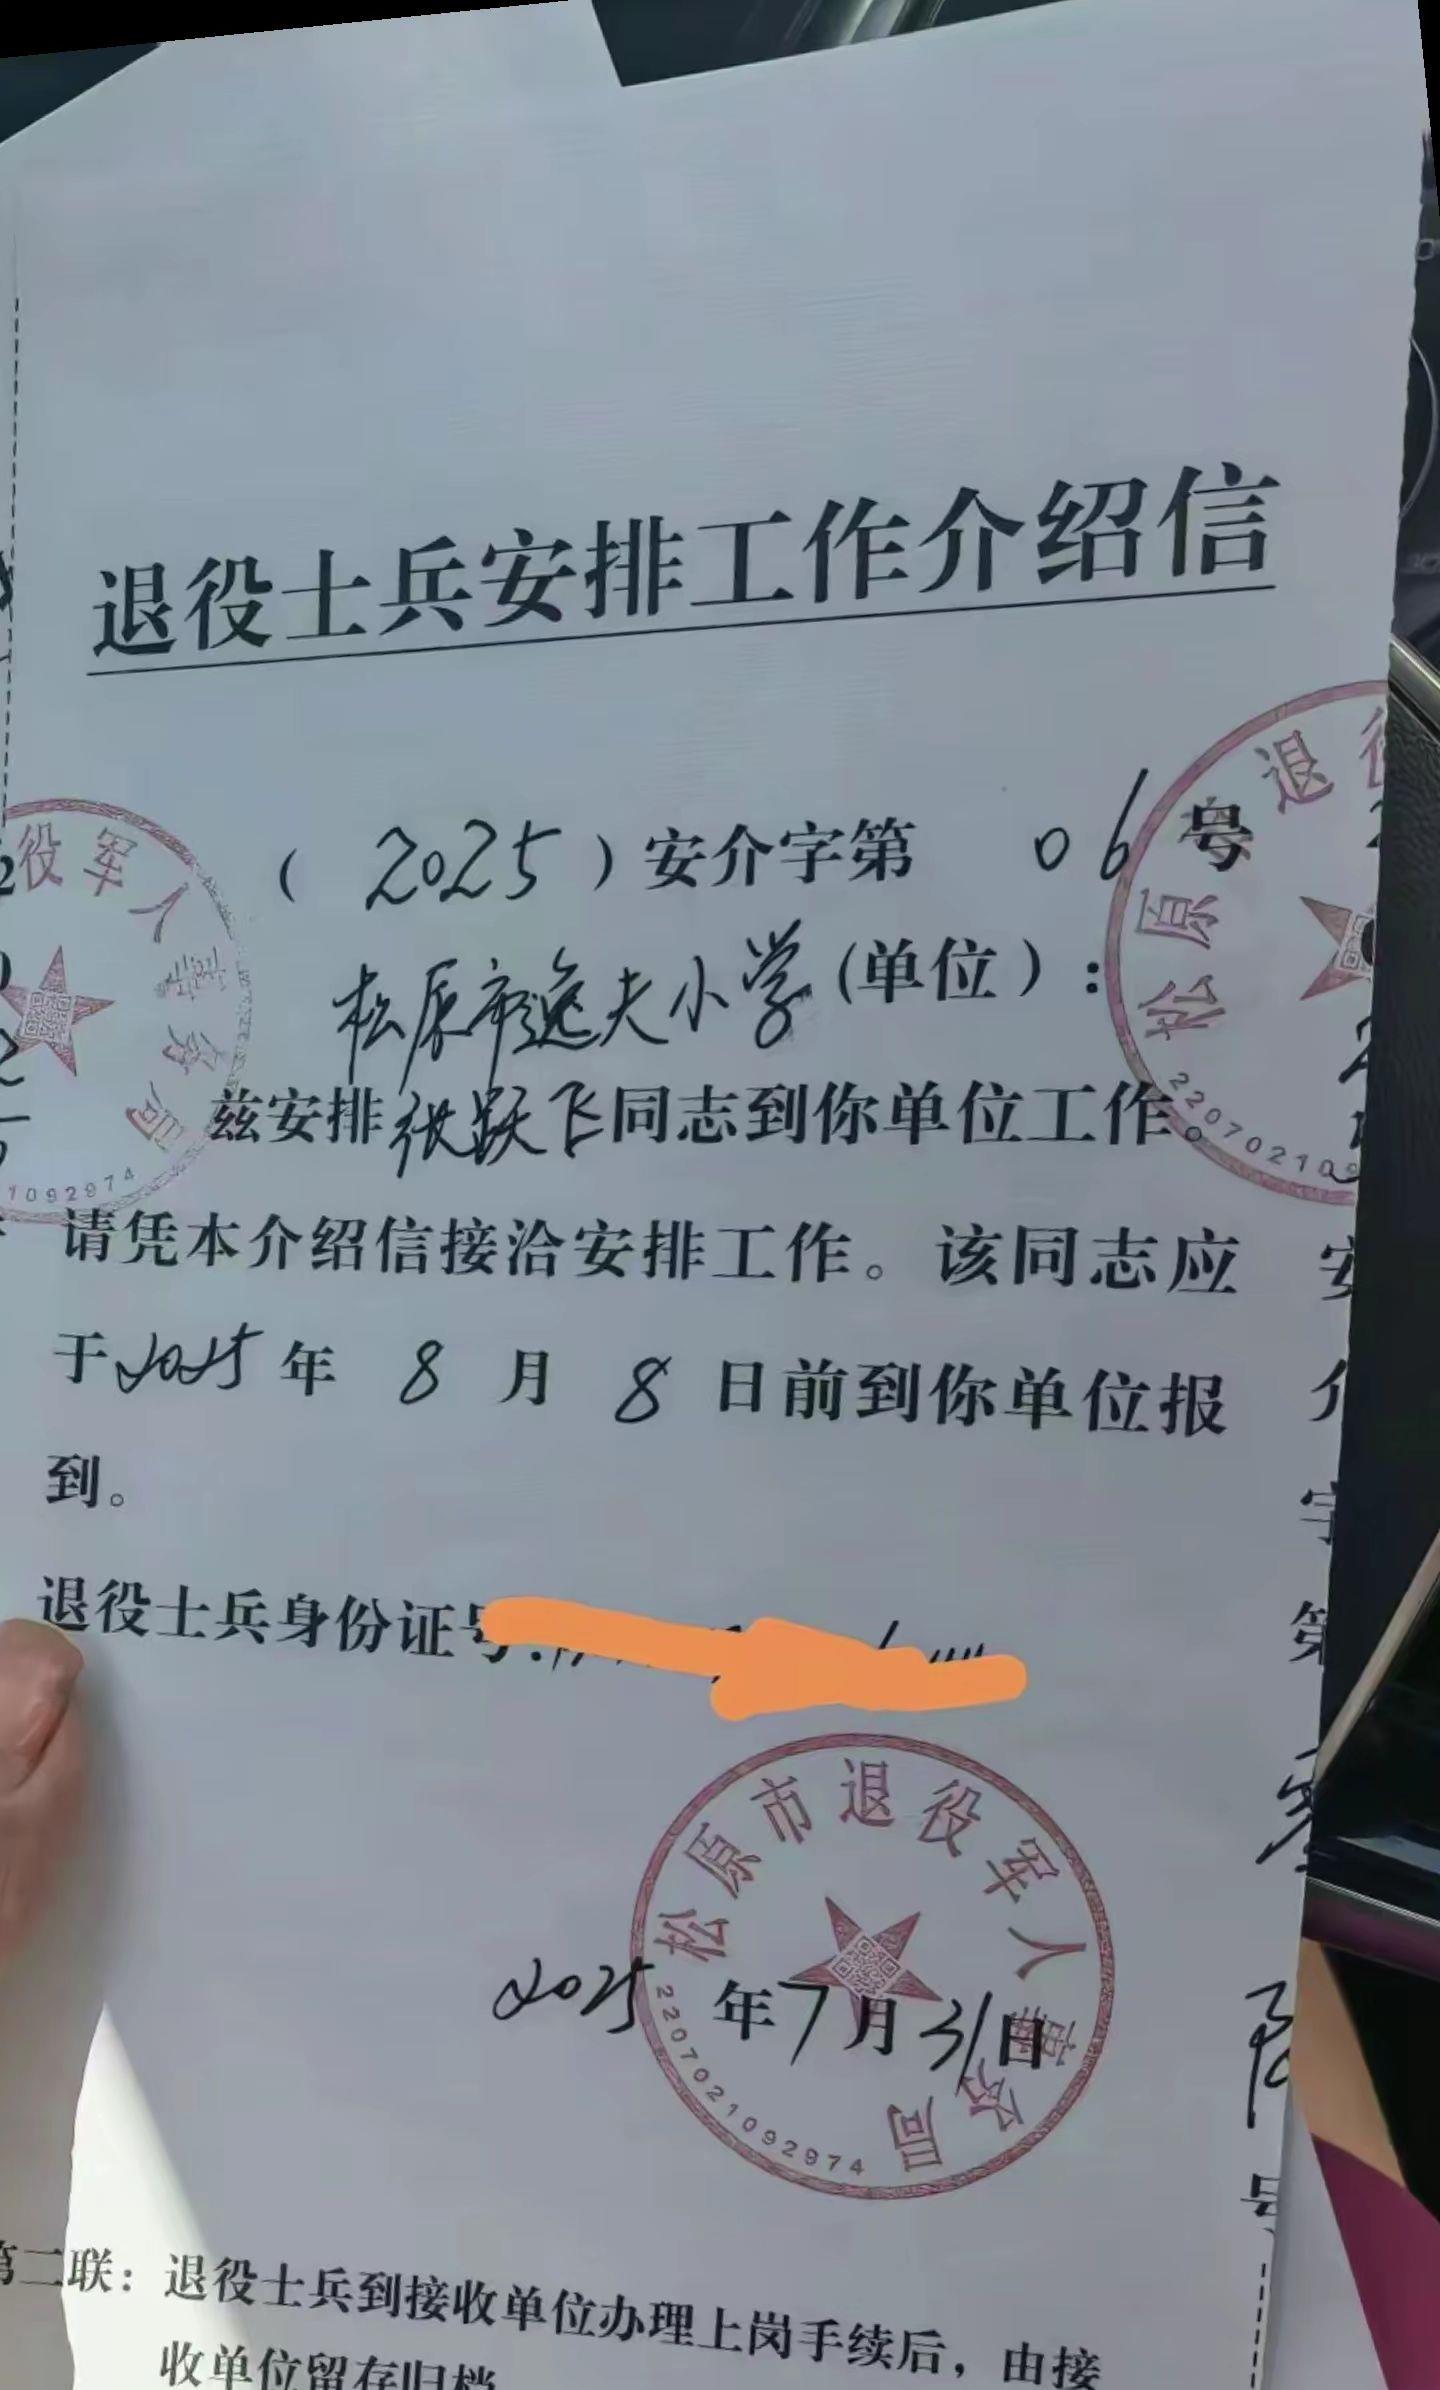 退役士兵安排工作介绍信
（2025）安介字第 06 号
松原市逸夫小学(单位）：
兹安排张跃飞同志到你单位工作。
请凭本介绍信接洽安排工作。该同志应
于2025年 8 月 8 日前到你单位报
到。
退役士兵身份证号:
松原市退役军人事务局
2207021092974
2025 年7月31日
第二联：退役士兵到接收单位办理上岗手续后，由接
收单位留存归档
役军人事务局
1092974
松原 退役
220702109
安介字第
号